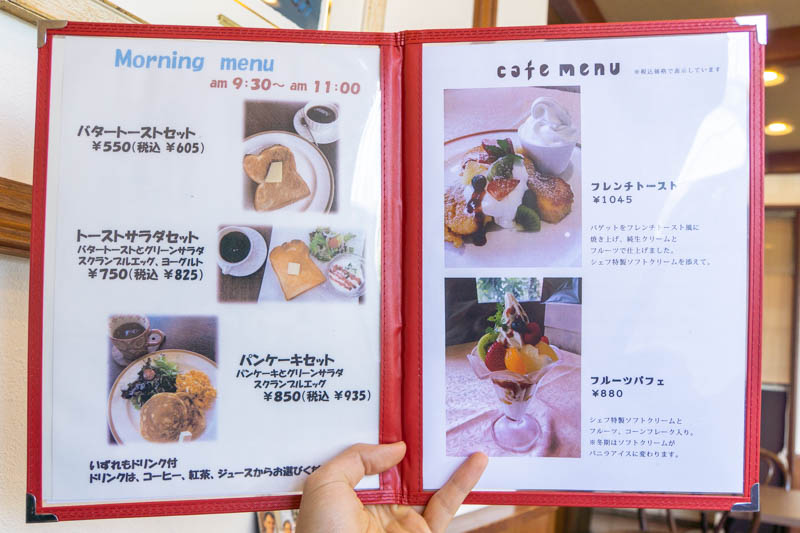 Morning menu
am 9:30～ am 11:00
バタートーストセット
￥550(税込 ￥605)
トーストサラダセット
バタートーストとグリーンサラダ
スクランブルエッグ、ヨーグルト
￥750(税込 ￥825)
パンケーキセット
パンケーキとグリーンサラダ
スクランブルエッグ
￥850(税込 ￥935)
いずれもドリンク付
ドリンクは、コーヒー、紅茶、ジュースからお選びくだ
cafe menu ※税込価格で表示しています
フレンチトースト
¥1045
バゲットをフレンチトースト風に
焼き上げ、純生クリームと
フルーツで仕上げました。
シェフ特製ソフトクリームを添えて。
フルーツパフェ
¥880
シェフ特製ソフトクリームと
フルーツ、コーンフレーク入り。
※冬期はソフトクリームが
バニラアイスに変わります。